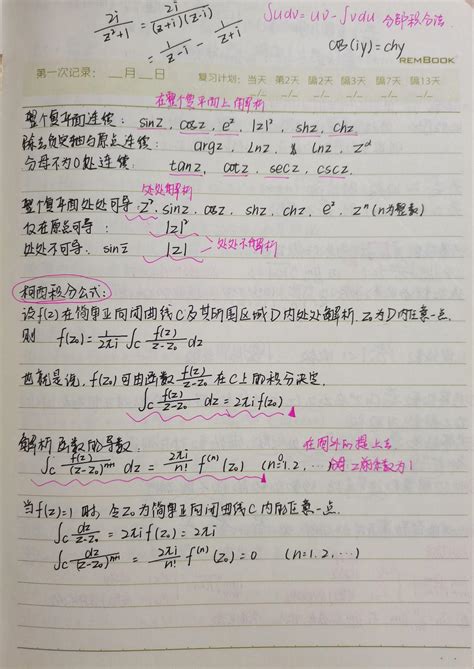 2i/(z²+1) = 2i/((z+i)(z-i))
= 1/(z-i) - 1/(z+i)
∫udv = uv - ∫vdu 分部积分法
cos(iy)=chy
REMBOOK
第一次记录: __月__日 复习计划: 当天 第2天 隔2天 隔3天 隔7天 隔13天
在整个复平面上解析
整个复平面连续: sinz, cosz, e^z, |z|², shz, chz
除去负实轴与原点连续: argz, lnz, Lnz, z^α
分母不为0处连续: tanz, cotz, secz, cscz.
处处解析
整个复平面处处可导: z², sinz, cosz, shz, chz, e^z, z^n (n为整数)
仅在原点可导: |z|²
处处不可导: |z| 处处不解析
柯西积分公式:
设f(z)在简单正向闭曲线C及其所围区域D内处处解析, z₀为D内任意一点.
则 f(z₀) = 1/(2πi) ∫_C f(z)/(z-z₀) dz
也就是说, f(z₀)可由函数 f(z)/(z-z₀) 在C上的积分决定.
∫_C f(z)/(z-z₀) dz = 2πi f(z₀)
解析函数的导数:
在圈外的提上去
∫_C f(z)/(z-z₀)^(n+1) dz = 2πi/n! f^(n)(z₀) (n=0,1,2,…) z前系数为1
当f(z)=1时, 令z₀为简单正向闭曲线C内任意一点.
∫_C dz/(z-z₀) = 2πi f(z₀) = 2πi
∫_C dz/(z-z₀)^(n+1) = 2πi/n! f^(n)(z₀) = 0 (n=1,2,…)